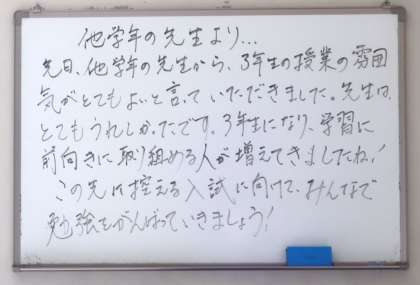 他学年の先生より...
先日、他学年の先生から、3年生の授業の雰囲
気がとてもよいと言っていただきました。先生は、
とてもうれしかったです。3年生になり、学習に
前向きに取り組める人が増えてきましたね！
この先に控える入試に向けて、みんなで
勉強をがんばっていきましょう！